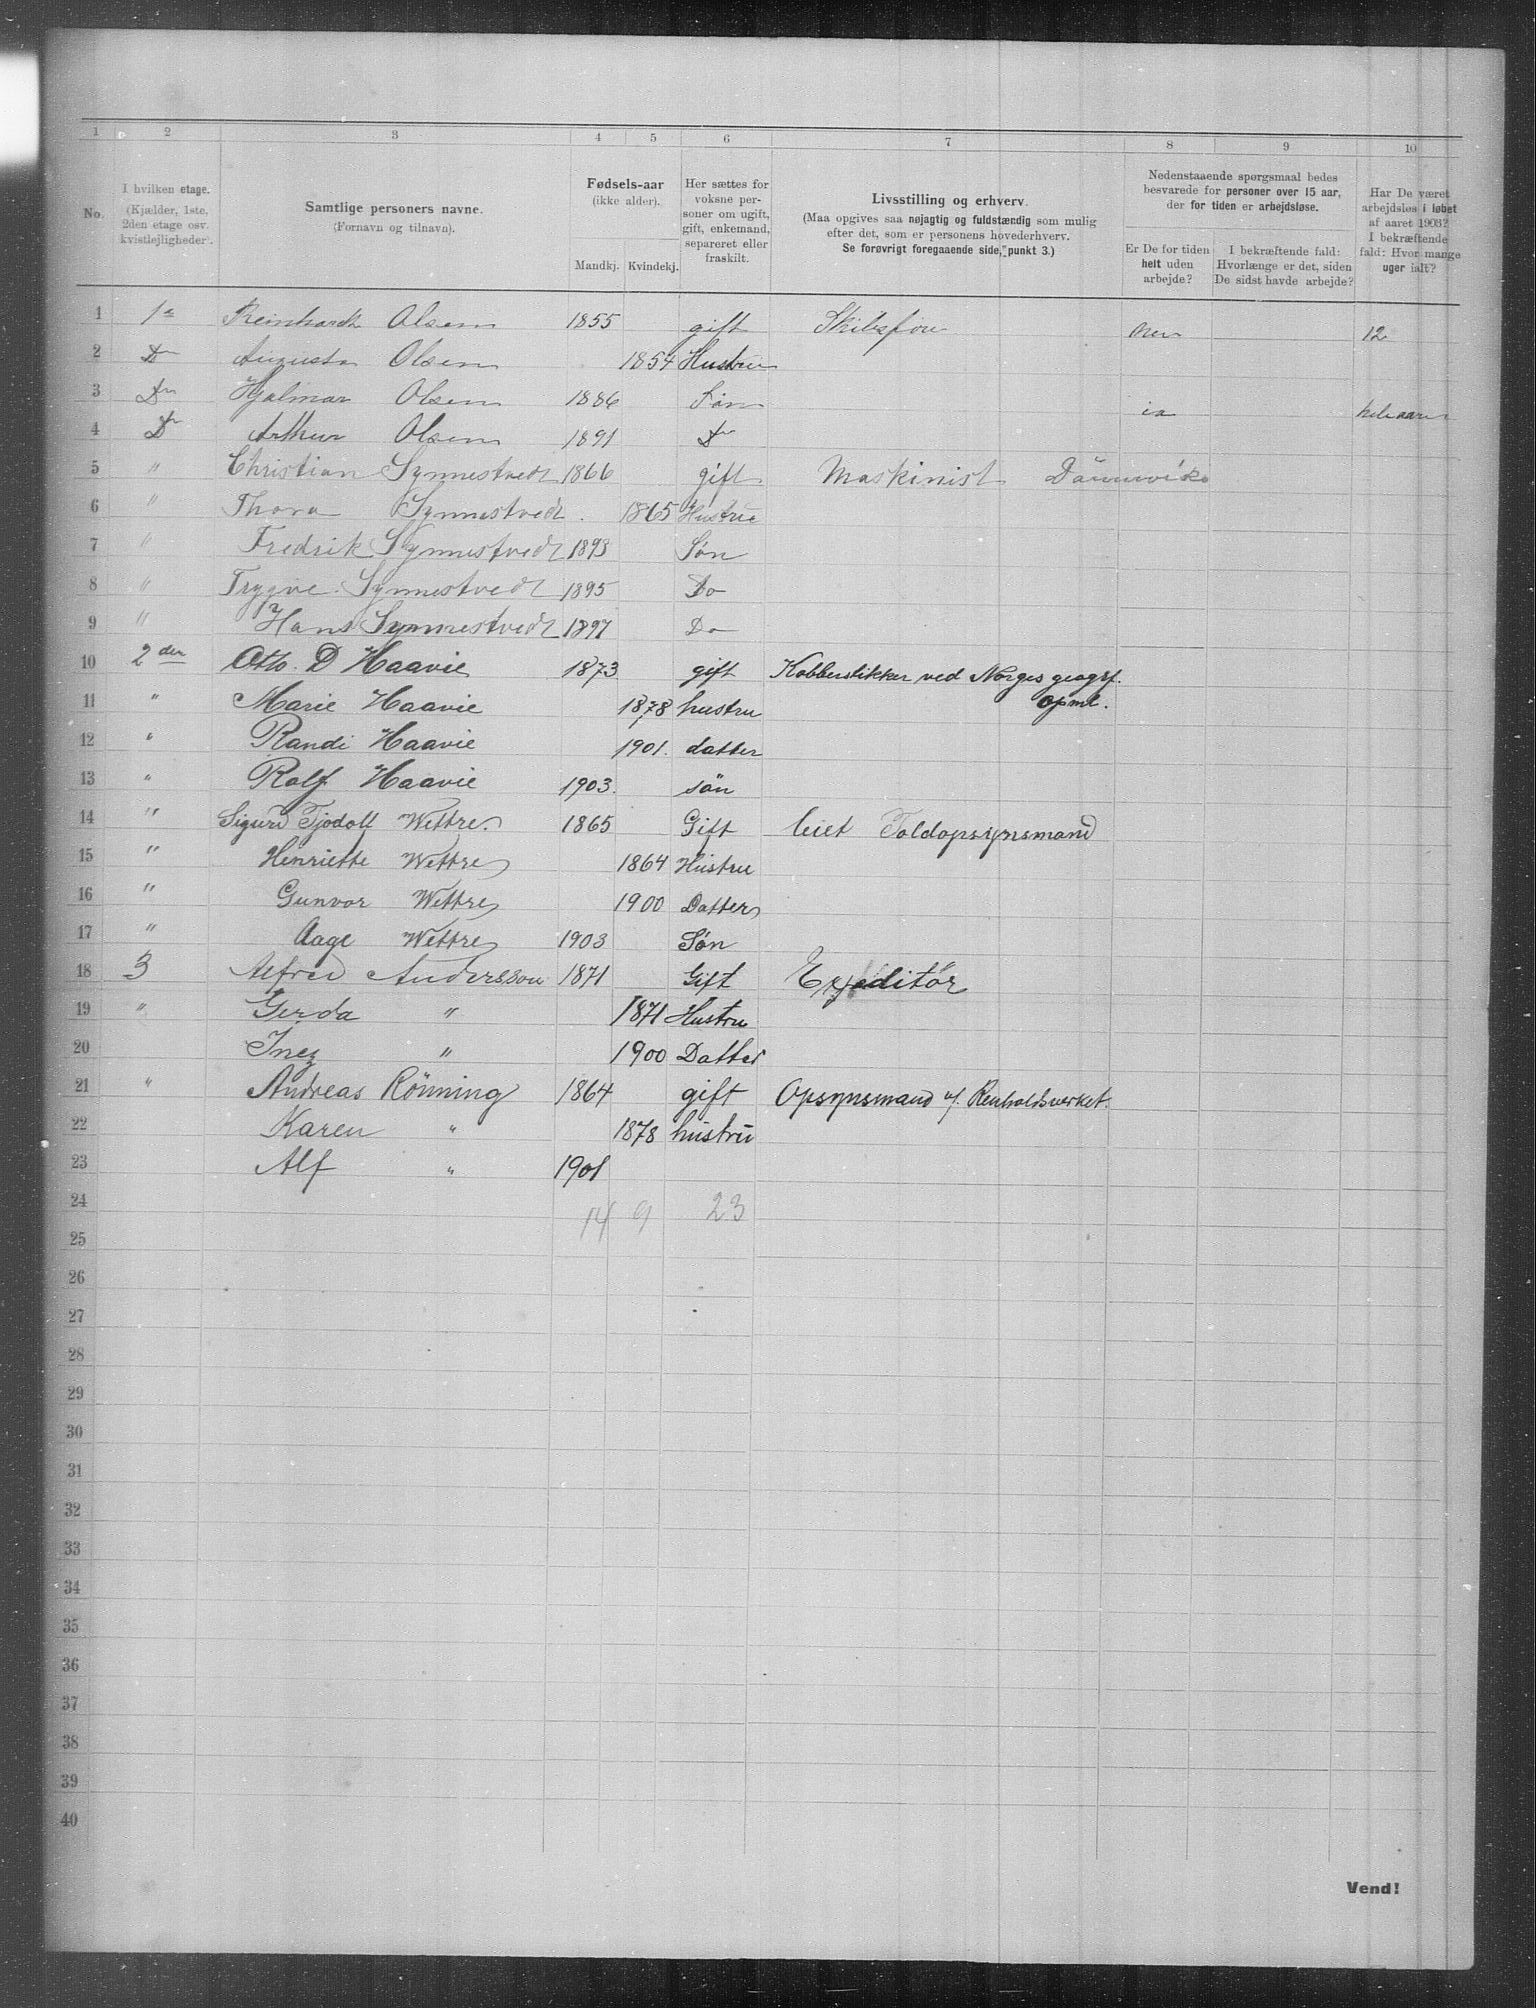 1 2 3 4 5 6 7 8 9 10
No.
I hvilken etage.
(Kjælder, 1ste,
2den etage osv.
kvistlejligheder).
Samtlige personers navne.
(Fornavn og tilnavn).
Fødsels-aar
(ikke alder).
Mandkj. Kvindekj.
Her sættes for
voksne per-
soner om ugift,
gift, enkemand,
separeret eller
fraskilt.
Livsstilling og erhverv.
(Maa opgives saa nøjagtig og fuldstændig som mulig
efter det, som er personens hovederhverv.
Se forøvrigt foregaaende side, punkt 3.)
Nedenstaaende spørgsmaal bedes
besvarede for personer over 15 aar,
der for tiden er arbejdsløse.
Er De for tiden
helt uden
arbejde?
I bekræftende fald:
Hvorlænge er det, siden
De sidst havde arbejde?
Har De været
arbejdsløs i løbet
af aaret 1903?
I bekræftende
fald: Hvor mange
uger ialt?
1 1ste Reinhardt Olsen 1855 gift nei 12
2 Do Augusta Olsen 1854 Hustru
3 Do Hjalmar Olsen 1886 Søn ia hele aaret
4 Do Arthur Olsen 1891 Do
5 " Christian Synnestvedt 1866 gift Maskinist
6 " Thora Synnestvedt. 1865 Hustru
7 " Fredrik Synnestvedt 1893 Søn
8 " Trygve Synnestvedt 1895 Do
9 " Hans Synnestvedt 1897 Do
10 2den Otto. D Haavie 1873 gift Kobberstikker ved Norges geogrf.
opml.
11 " Marie Haavie 1878 hustru
12 " Randi Haavie 1901. datter
13 " Rolf Haavie 1903. søn
14 " Sigurd Tjodolf Wettre. 1865 Gift leiet Toldopsynsmand
15 " Henriette Wettre 1864 Hustru
16 " Gunvor Wettre 1900 Datter
17 " Aage Wettre 1903 Søn
18 3 Alfred Andersson 1871 Gift Expeditør
19 " Gerda " 1871 Hustru
20 Inez " 1900 Datter
21 " Andreas Rönning 1864 gift Opsynsmand v/. Renholdsverket.
22 Karen " 1878 hustru
23 Alf " 1901
24 14 9 23
25
26
27
28
29
30
31
32
33
34
35
36
37
38
39
40
Vend!